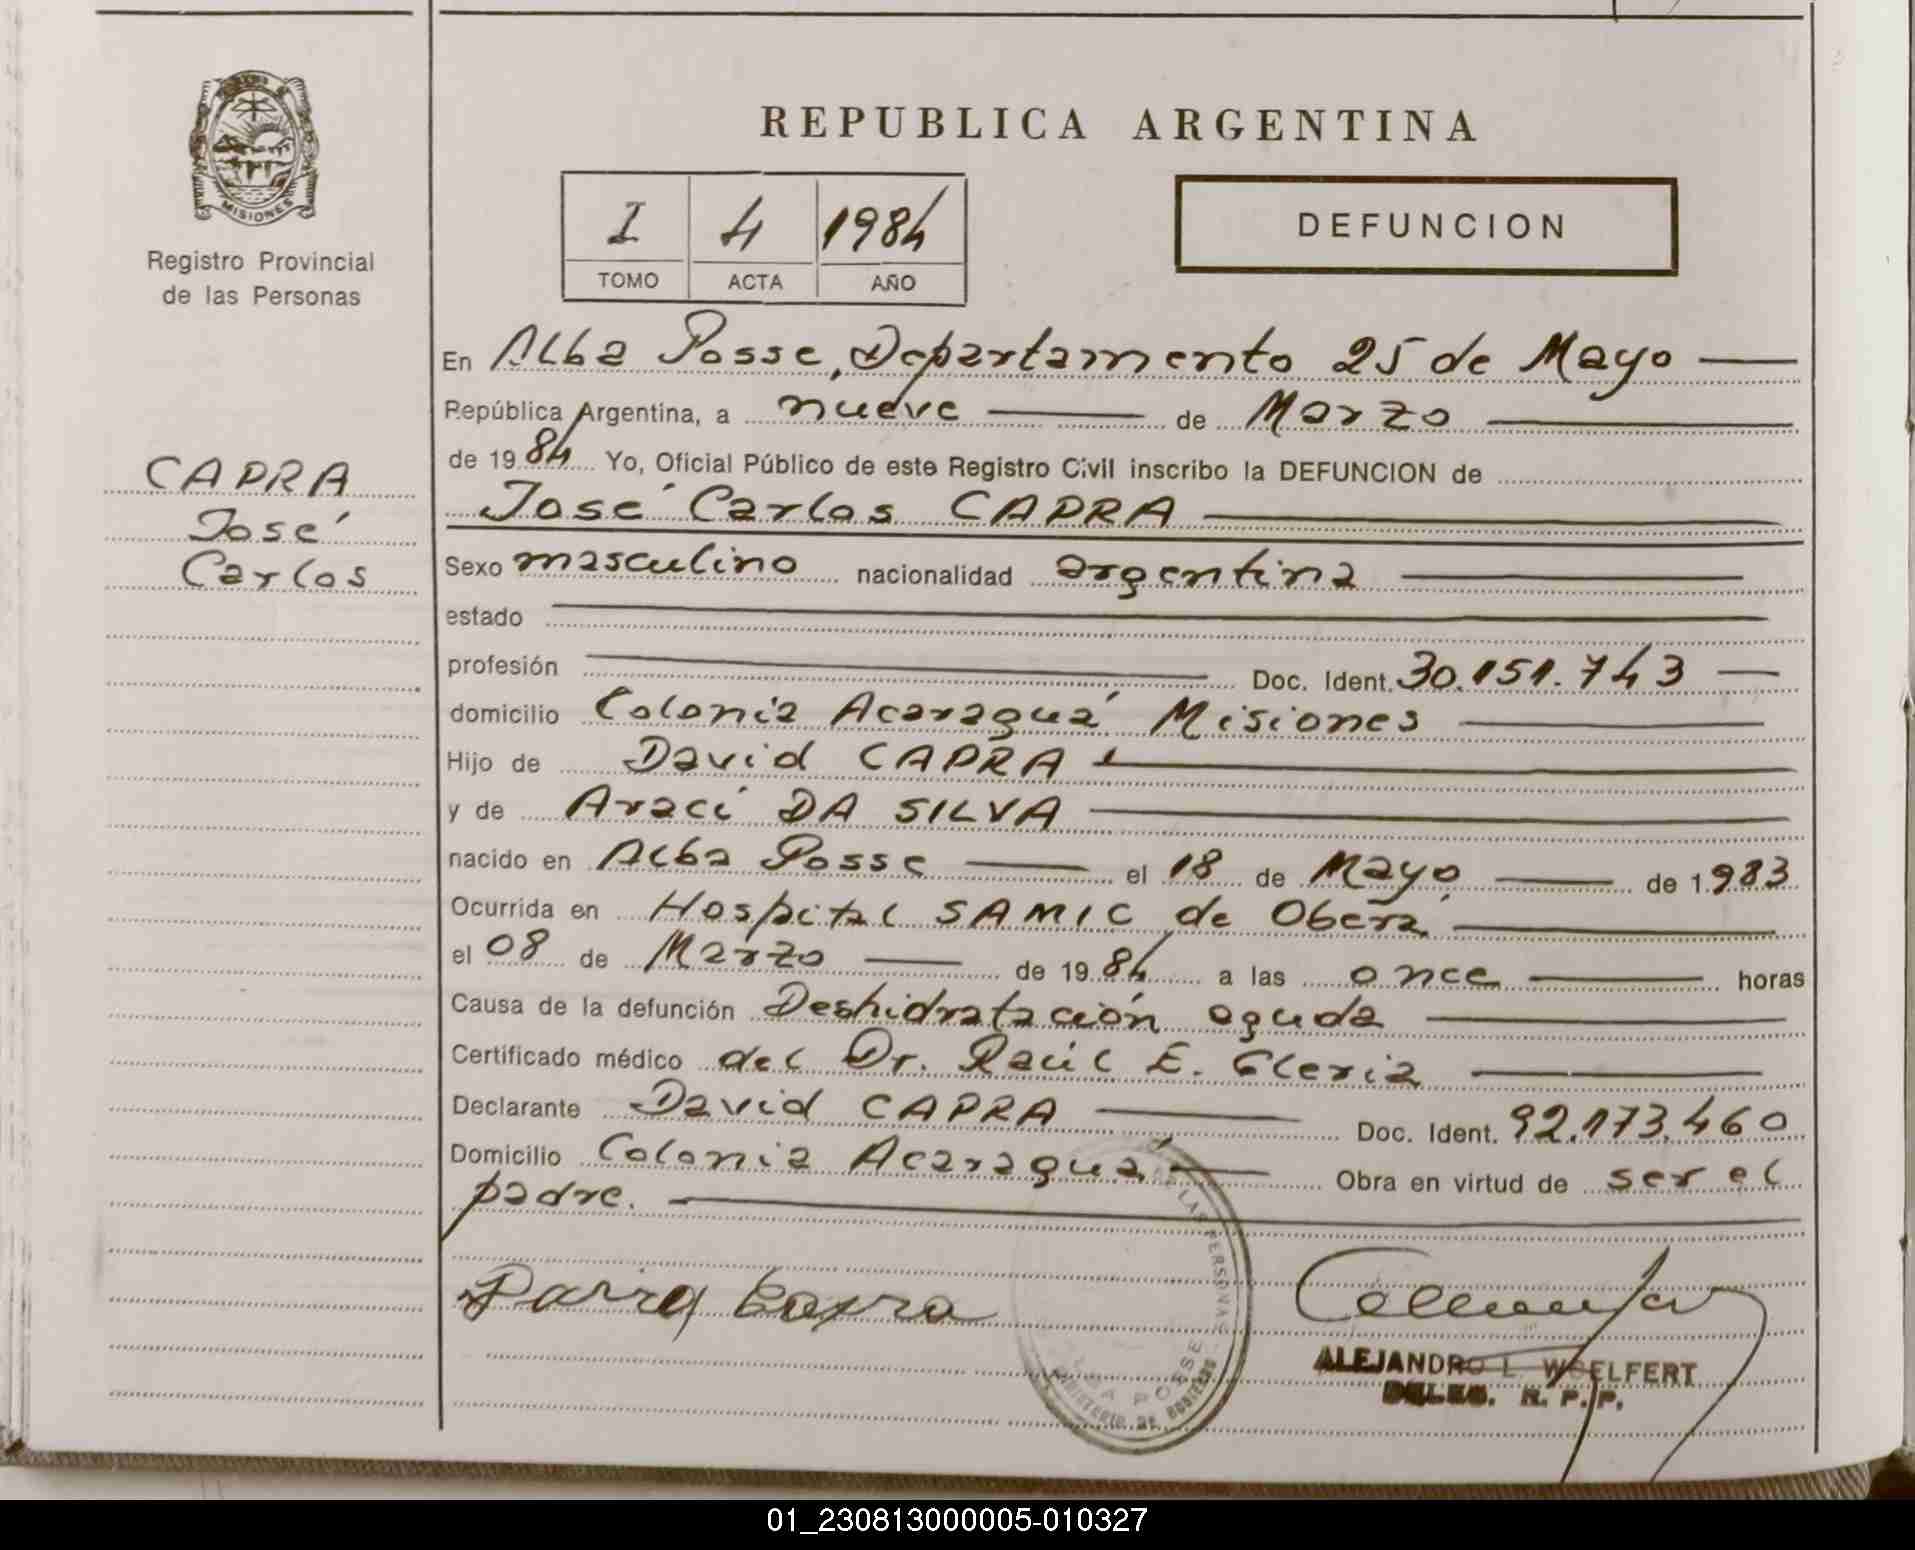 REPUBLICA ARGENTINA
MISIONES
Registro Provincial
de las Personas
I 4 1984
TOMO ACTA AÑO
DEFUNCION
CAPRA
José
Carlos
En Alba Posse, Departamento 25 de Mayo
República Argentina, a nueve de Marzo
de 1984 Yo, Oficial Público de este Registro Civil inscribo la DEFUNCION de
José Carlos CAPRA
Sexo masculino nacionalidad argentina
estado
profesión Doc. Ident. 30.151.743
domicilio Colonia Acaraguá Misiones
Hijo de David CAPRA
y de Araci DA SILVA
nacido en Alba Posse el 18 de Mayo de 1983
Ocurrida en Hospital SAMIC de Oberá
el 08 de Marzo de 1984 a las once horas
Causa de la defunción Deshidratación aguda
Certificado médico del Dr. Raúl E. Gleria
Declarante David CAPRA Doc. Ident. 92.173.460
Domicilio Colonia Acaragua Obra en virtud de ser el
padre.
DE LAS PERSONAS
ALBA POSSE
MINISTERIO DE GOBIERNO
David Capra
ALEJANDRO L. WOELFERT
DELEG. R. P. P.
01_230813000005-010327